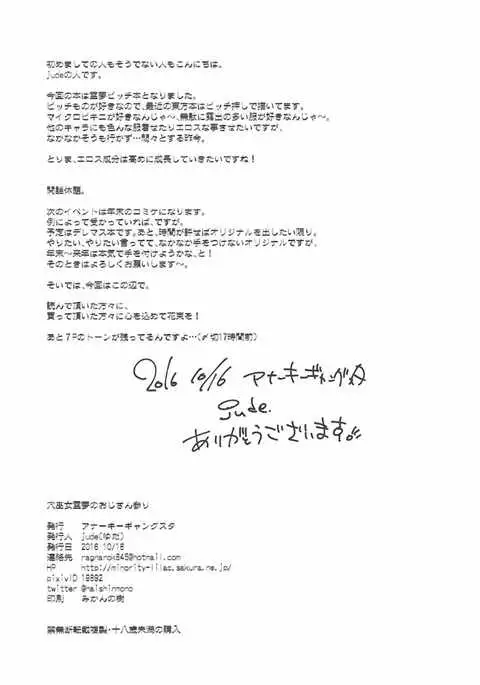 初めましての人もそうでない人もこんにちは。
judeの人です。
今回の本は霊夢ビッチ本となりました。
ビッチものが好きなので、最近の東方本はビッチ押しで描いてます。
マイクロビキニが好きなんじゃ～、無駄に露出の多い服が好きなんじゃ～。
他のキャラにも色んな服着せたりエロスな事させたいですが、
なかなかそうも行かず…悶々とする昨今。
とりま、エロス成分は高めに成長していきたいですね！
閑話休題。
次のイベントは年末のコミケになります。
例によって受かっていれば、ですが。
予定はデレマス本です。あと、時間が許せばオリジナルを出したい限り。
やりたい、やりたい言ってて、なかなか手をつけないオリジナルですが、
年末～来年は本気で手を付けようかな、と！
そのときはよろしくお願いします～。
そいでは、今回はこの辺で。
読んで頂いた方々に、
買って頂いた方々に心を込めて花束を！
あと７Pのトーンが残ってるんですよ…(〆切17時間前)
2016 10/16 アナーキーギャングスタ
jude.
ありがとうございます!!
穴巫女霊夢のおじさん参り
発行 アナーキーギャングスタ
発行人 jude(ゆだ)
発行日 2016 10/16
連絡先 ragnarok845@hotmail.com
HP http://minority-lilac.sakura.ne.jp/
pixivID 18692
twitter @haishinmono
印刷 みかんの樹
禁無断転載複製・十八歳未満の購入